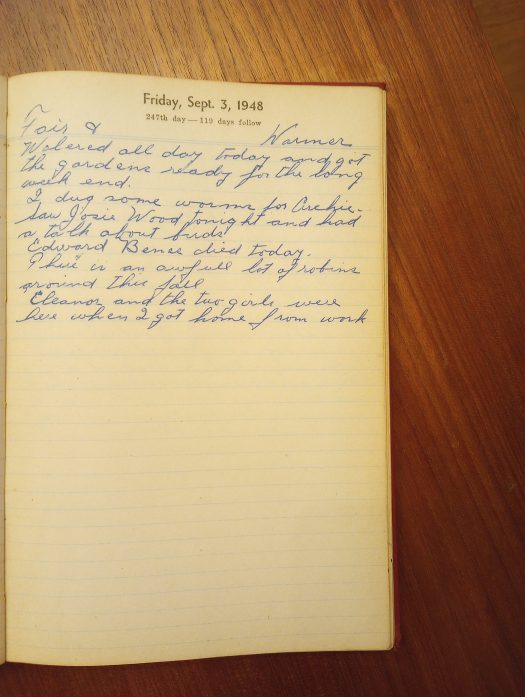 Friday, Sept. 3, 1948
247th day—119 days follow
Fair & Warmer
Watered all day today and got
the gardens ready for the long
week end.
I dug some worms for Archie.
Saw Josie Wood tonight and had
a talk about birds
Edward Bence died today.
There is an awfull lot of robins
around this fall
Eleanor and the two girls were
here when I got home from work